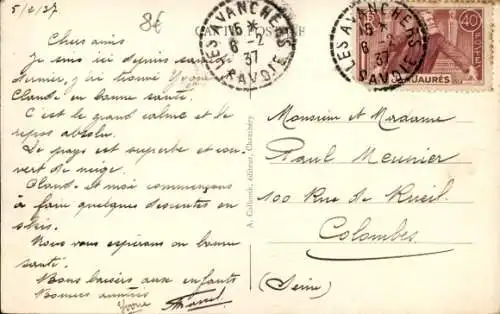 5/2/37
8€
CARTE POSTALE
LES AVANCHERS
15 *
6 - 2
37
SAVOIE
LES AVANCHERS
15 *
6 - 2
37
SAVOIE
40
JAURÈS
Chers amis
Je suis ici depuis samedi
dernier, j'ai trouvé Yvonne
Claude en bonne santé.
C'est le grand calme et le
repos absolu.
Le pays est superbe et cou-
vert de neige.
Claude et moi commençons
à faire quelques descentes en
skis.
Nous vous espérons en bonne
santé.
Bons baisers aux enfants
Bonnes amitiés
Yvonne Marcel
A. Caillonek, éditeur, Chambéry
Monsieur et Madame
Paul Meunier
100 Rue de Rueil
Colombes
(Seine)